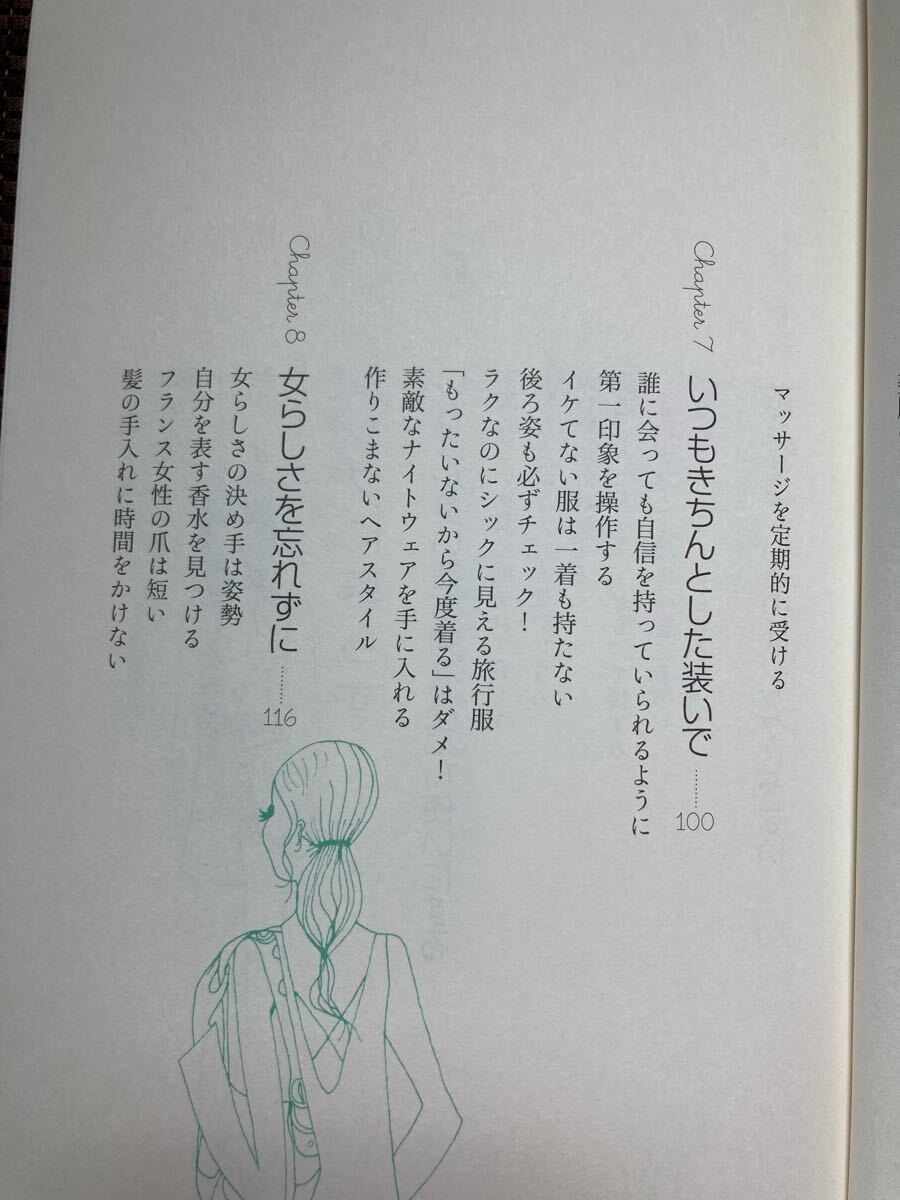 マッサージを定期的に受ける
Chapter 7 いつもきちんとした装いで ………… 100
誰に会っても自信を持っていられるように
第一印象を操作する
イケてない服は一着も持たない
後ろ姿も必ずチェック！
ラクなのにシックに見える旅行服
「もったいないから今度着る」はダメ！
素敵なナイトウェアを手に入れる
作りこまないヘアスタイル
Chapter 8 女らしさを忘れずに ………… 116
女らしさの決め手は姿勢
自分を表す香水を見つける
フランス女性の爪は短い
髪の手入れに時間をかけない